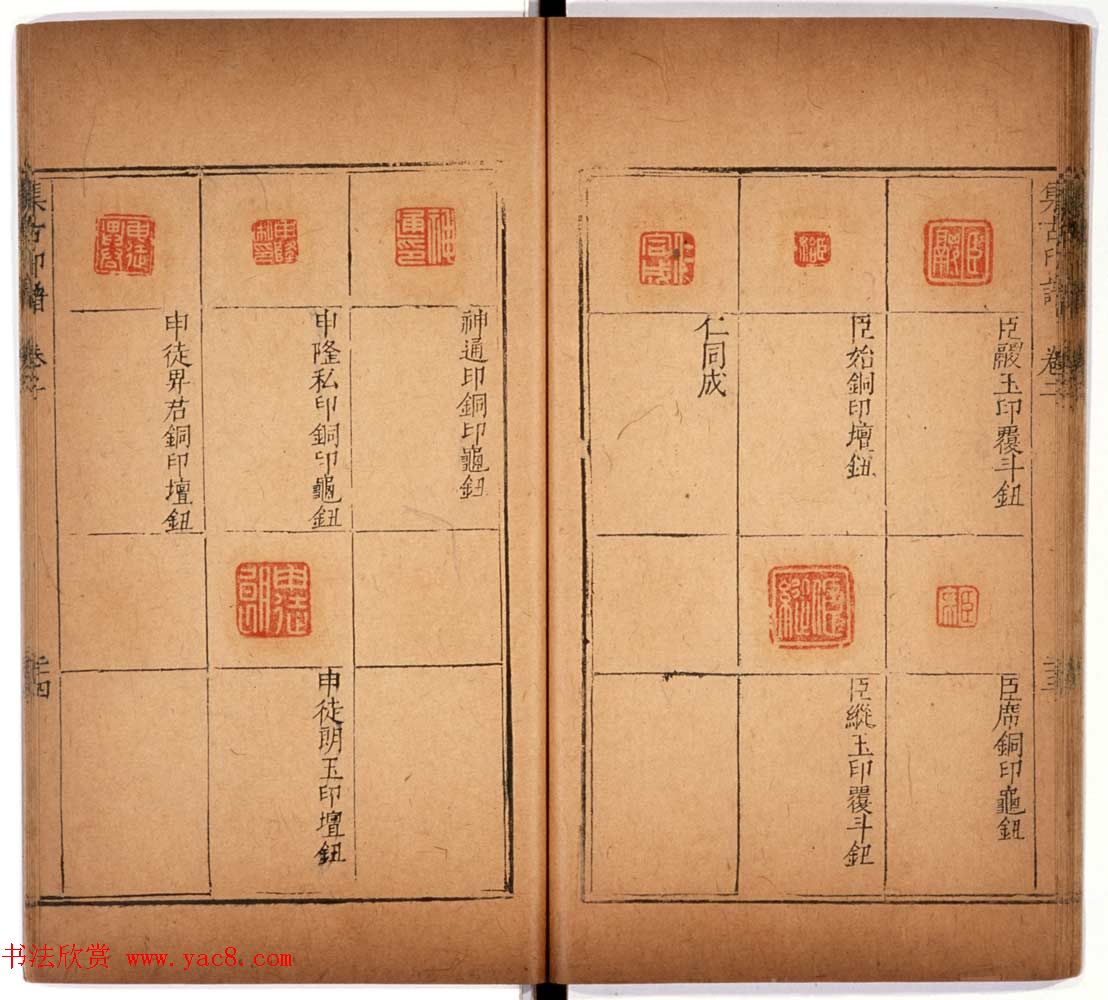 集古印譜 卷二
臣嚴玉印覆斗鈕
臣始銅印壇鈕
仁同成
臣席銅印龜鈕
臣縱玉印覆斗鈕
神通印銅印龜鈕
申隆私印銅印龜鈕
申徒昇君銅印壇鈕
申徒朗玉印壇鈕
集古印譜
書法欣赏 www.yac8.com